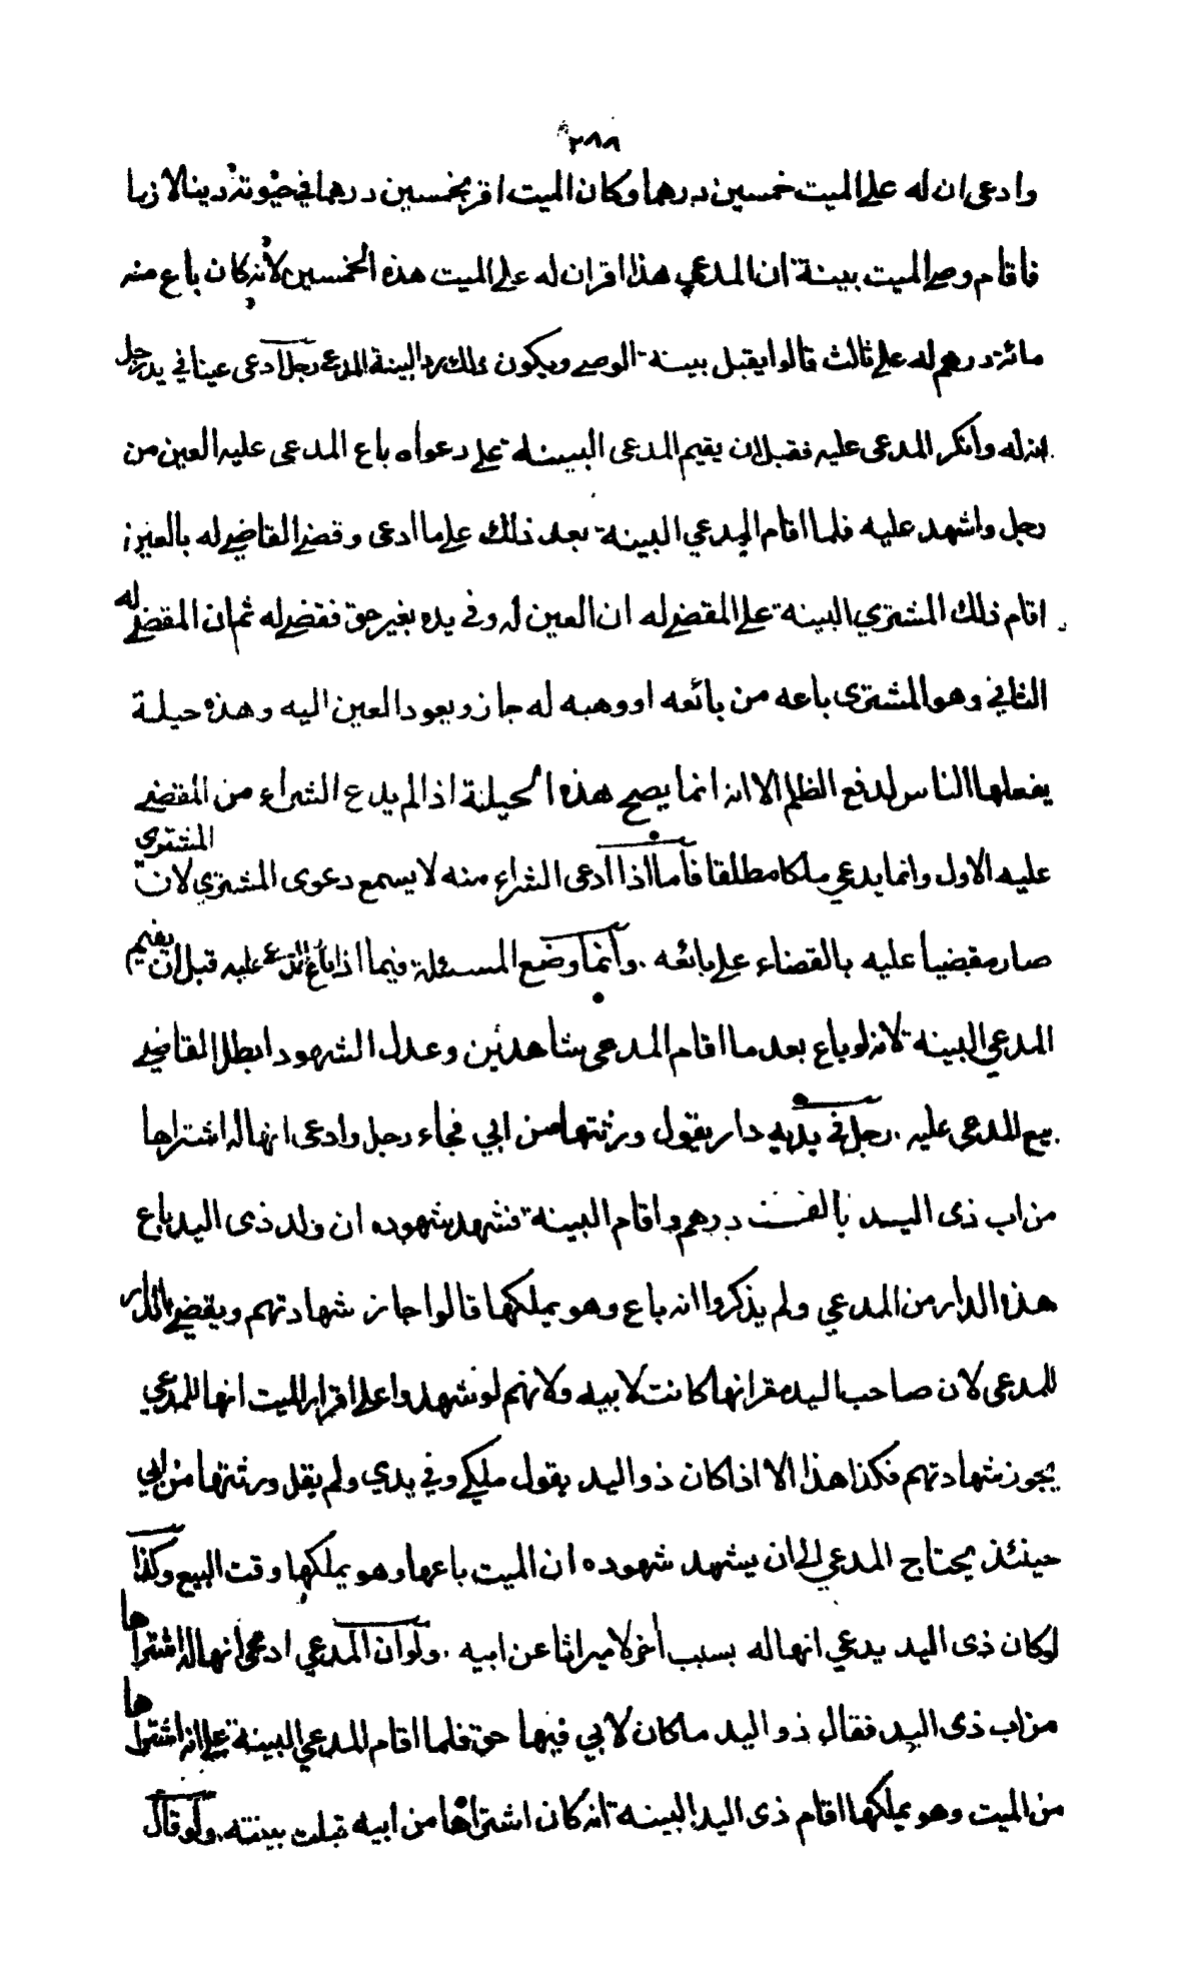 ٢٨٨
وادعى ان له على الميت خمسين درهما وكان الميت اقر بخمسين درهما في حيوته دينا لازما
فاقام وصي الميت بينة ان المدعي هذا اقر ان له على الميت هذه الخمسين لانه كان باع منه
مائة درهم له على ثالث قالوا يقبل بينة الوصي ويكون ذلك رد البينة المدعي رجل ادعى عينا في يد رجل
انه له وانكر المدعى عليه فقبل ان يقيم المدعى البينة على دعواه باع المدعى عليه العين من
رجل واشهد عليه فلما اقام المدعي البينة بعد ذلك على ما ادعى وقضى القاضي له بالعين
اقام ذلك المشتري البينة على المقضي له ان العين له وفي يده بغير حق فقضى له ثم ان المقضي له
الثاني وهو المشترى باعه من بائعه او وهبه له جاز ويعود العين اليه وهذه حيلة
يفعلها الناس لدفع الظلم الا انه انما يصح هذه الحيلة اذا لم يدع الشراء من المقضي
عليه الاول وانما يدعي ملكا مطلقا فاما اذا ادعى الشراء منه لا يسمع دعوى المشتري لان المشترى
صار مقضيا عليه بالقضاء على بائعه . وانما وضع المسئلة فيما اذا باع المدعى عليه قبل ان يقيم
المدعي البينة لانه لو باع بعد ما اقام المدعى شاهدين وعدل الشهود ابطل القاضي
بيع المدعى عليه . رجل في يديه دار يقول ورثتها من ابي فجاء رجل وادعى انها له اشتراها
من اب ذى اليد بالف درهم واقام البينة فشهد شهوده ان والد ذى اليد باع
هذه الدار من المدعي ولم يذكروا انه باع وهو يملكها قالوا جاز شهادتهم ويقضي بالدار
للمدعى لان صاحب اليد مقر انها كانت لابيه ولانهم لو شهدوا على اقرار الميت انها للمدعي
يجوز شهادتهم فكذا هذا الا اذا كان ذو اليد يقول ملكي وفي يدي ولم يقل ورثتها من ابي
حينئذ يحتاج المدعي الى ان يشهد شهوده ان الميت باعها وهو يملكها وقت البيع وكذا
لو كان ذى اليد يدعي انها له بسبب اخر لا ميراثا عن ابيه . ولو ان المدعي ادعى انها له اشتراها
من اب ذى اليد فقال ذو اليد ما كان لابي فيها حق فلما اقام المدعي البينة على انه اشتراها
من الميت وهو يملكها اقام ذى اليد البينة انه كان اشتراها من ابيه قبلت بينته . ولو قال